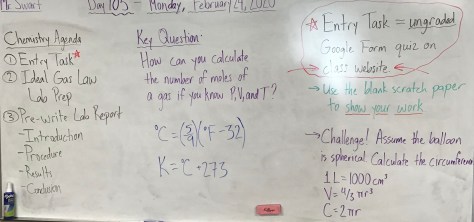 Mr Swart
Day 105 - Monday, February 24, 2020
Chemistry Agenda
① Entry Task*
② Ideal Gas Law
Lab Prep
③ Pre-write Lab Report
- Introduction
- Procedure
- Results
- Conclusion
Key Question:
How can you calculate
the number of moles of
a gas if you know P, V, and T?
°C = (5/9)(°F - 32)
K = °C + 273
* Entry Task = ungraded
Google Form quiz on
class website.
→ Use the blank scratch paper
to show your work
→ Challenge! Assume the balloon
is spherical. Calculate the circumference
1 L = 1000 cm³
V = 4/3 πr³
C = 2πr